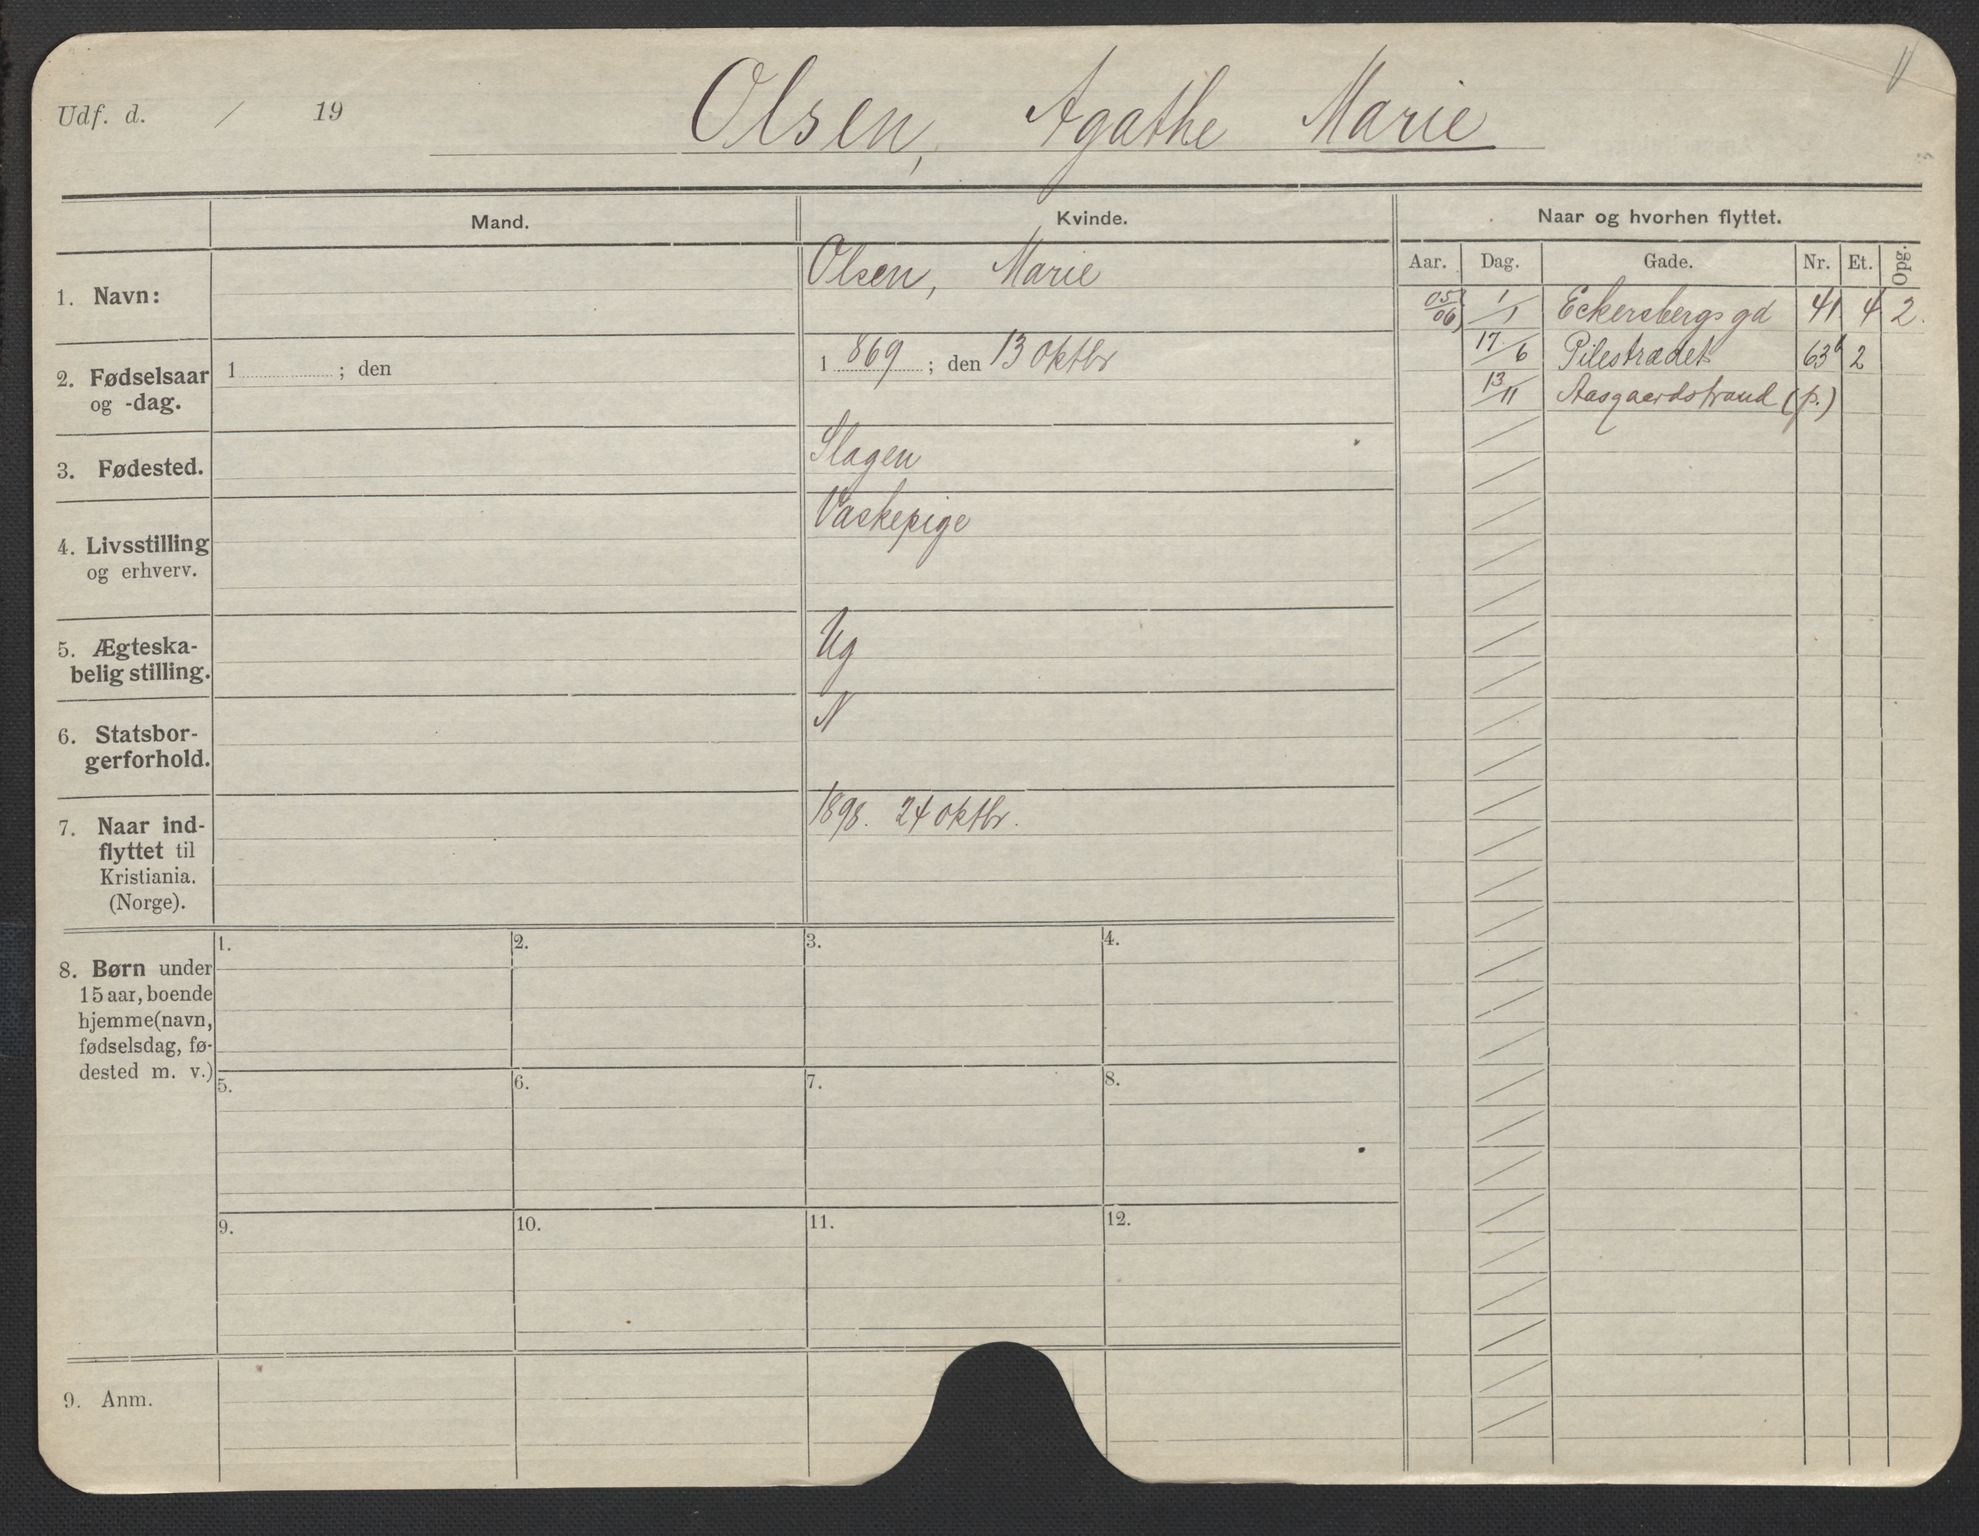 Udf. d. / 19 Olsen, Agathe Marie
Mand. Kvinde. Naar og hvorhen flyttet.
Aar. Dag. Gade. Nr. Et. Opg.
1. Navn: Olsen, Marie
05/06} 1/1 Eckersbergs gd 41 4 2.
17/6 Pilestrædet 63b 2
13/11 Aasgaardstrand (p.)
2. Fødselsaar
og -dag.
1 ; den
1 869 ; den 13 oktbr
3. Fødested. Slagen
4. Livsstilling
og erhverv.
Vaskepige
5. Ægteska-
belig stilling.
Ug
6. Statsbor-
gerforhold.
N
7. Naar ind-
flyttet til
Kristiania.
(Norge).
1898. 24 oktbr.
8. Børn under
15 aar, boende
hjemme (navn,
fødselsdag, fø-
dested m. v.)
1. 2. 3. 4.
5. 6. 7. 8.
9. 10. 11. 12.
9. Anm.